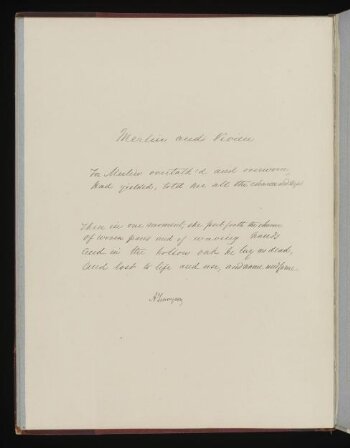 Merlin and Vivien
For Merlin overtalk'd and overworn,
Had yielded, told her all the charm and slept
Then in one moment, she put forth the charm
Of woven paces and of waving hands
And in the hollow oak he lay as dead,
And lost to life and use, and name and fame.
A Tennyson